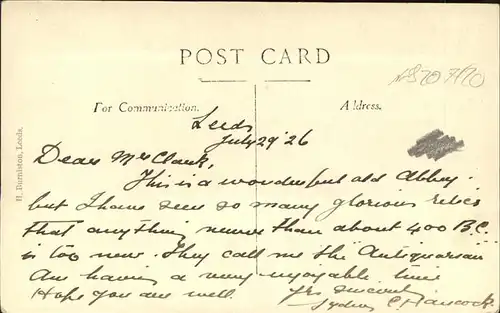 POST CARD
For Communication.
Address.
H. Burniston, Leeds.
Leeds
July 29 '26
Dear Mrs Clark,
This is a wonderful old Abbey
but I have seen so many glorious relics
that anything newer than about 400 B.C.
is too new. They call me the Antiquarian
Am having a very enjoyable time
Hope you are well. Yrs sincerely
Sydney C. Hancock.